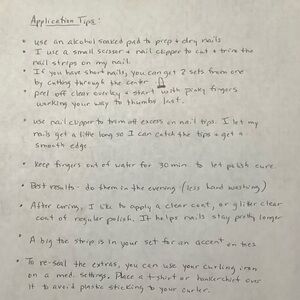 Application Tips:
• use an alcohol soaked pad to prep + dry nails
• I use a small scissor + nail clipper to cut + trim the
nail strips on my nail.
• If you have short nails, you can get 2 sets from one
by cutting through the center
• peel off clear overlay + start with pinky fingers
working your way to thumbs last.
• use nail clipper to trim off excess on nail tips. I let my
nails get a little long so I can catch the tips + get a
smooth edge.
• Keep fingers out of water for 30 min. to let polish cure.
• Best results - do them in the evening (less hand washing)
• After curing, I like to apply a clear coat, or gliter clear
coat of regular polish. It helps nails stay pretty longer
• A big toe strip is in your set for an accent on toes
• To re-seal the extras, you can use your curling iron
on a med. settings. Place a t-shirt or hankerchief over
it to avoid plastic sticking to your curler.